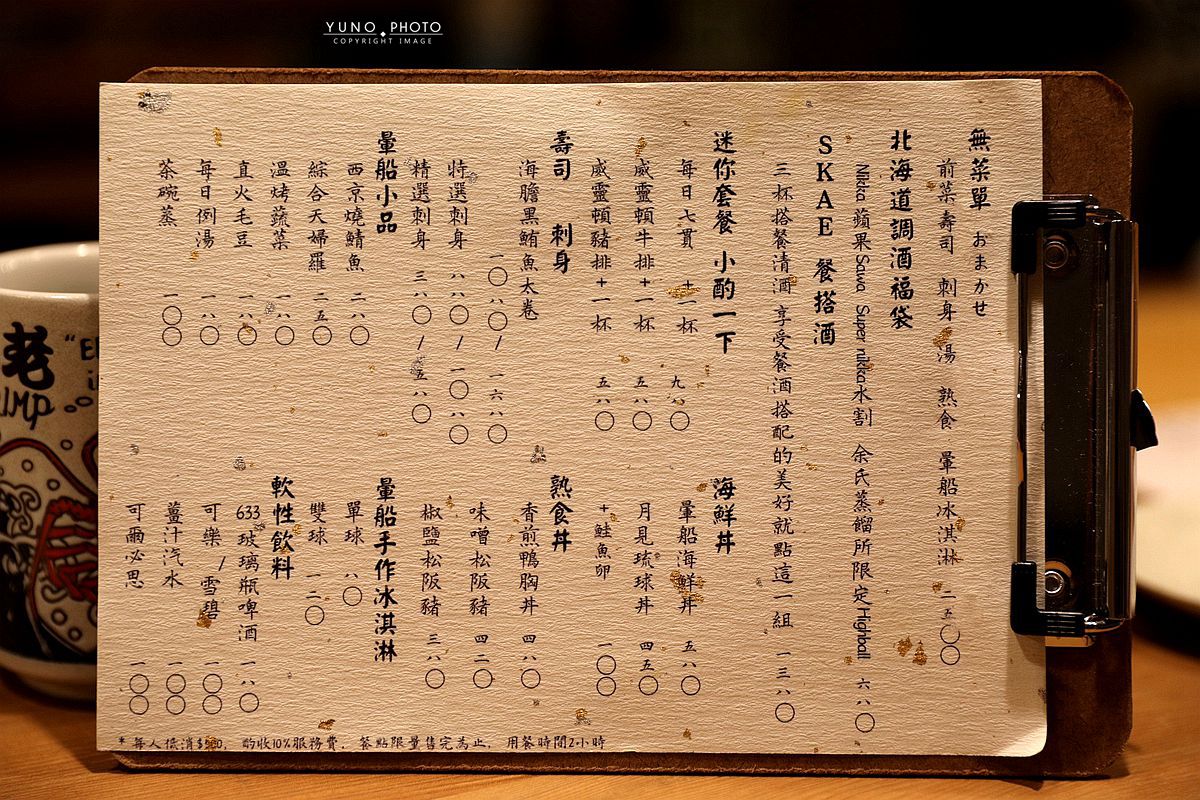 YUNO PHOTO
COPYRIGHT IMAGE
無菜單 おまかせ
前菜 壽司 刺身 湯 熟食 暈船冰淇淋 二五〇〇
北海道調酒福袋
Nikka 蘋果Sawa Super nikka水割 余氏蒸餾所限定Highball 六八〇
SKAE 餐搭酒
三杯搭餐清酒 享受餐酒搭配的美好就點這一組 一三八〇
迷你套餐 小酌一下
每日七貫 +一杯 九八〇
威靈頓牛排+一杯 五八〇
威靈頓豬排+一杯 五八〇
海鮮丼
暈船海鮮丼 五八〇
月見琉球丼 四五〇
+鮭魚卵 一〇〇
壽司 刺身
海膽黑鮪魚太卷 一〇八〇/一六八〇
特選刺身 八八〇/一〇八〇
精選刺身 三八〇/五八〇
熟食丼
香煎鴨胸丼 四八〇
味噌松阪豬 四二〇
椒鹽松阪豬 三八〇
暈船小品
西京燒鯖魚 二八〇
綜合天婦羅 二五〇
溫烤蔬菜 一八〇
直火毛豆 一八〇
每日例湯 一八〇
茶碗蒸 一〇〇
暈船手作冰淇淋
單球 八〇
雙球 一二〇
軟性飲料
633玻璃瓶啤酒 一八〇
可樂/雪碧 一〇〇
薑汁汽水 一〇〇
可爾必思 一〇〇
* 每人低消$, 酌收10%服務費, 餐點限量售完為止, 用餐時間2小時
老